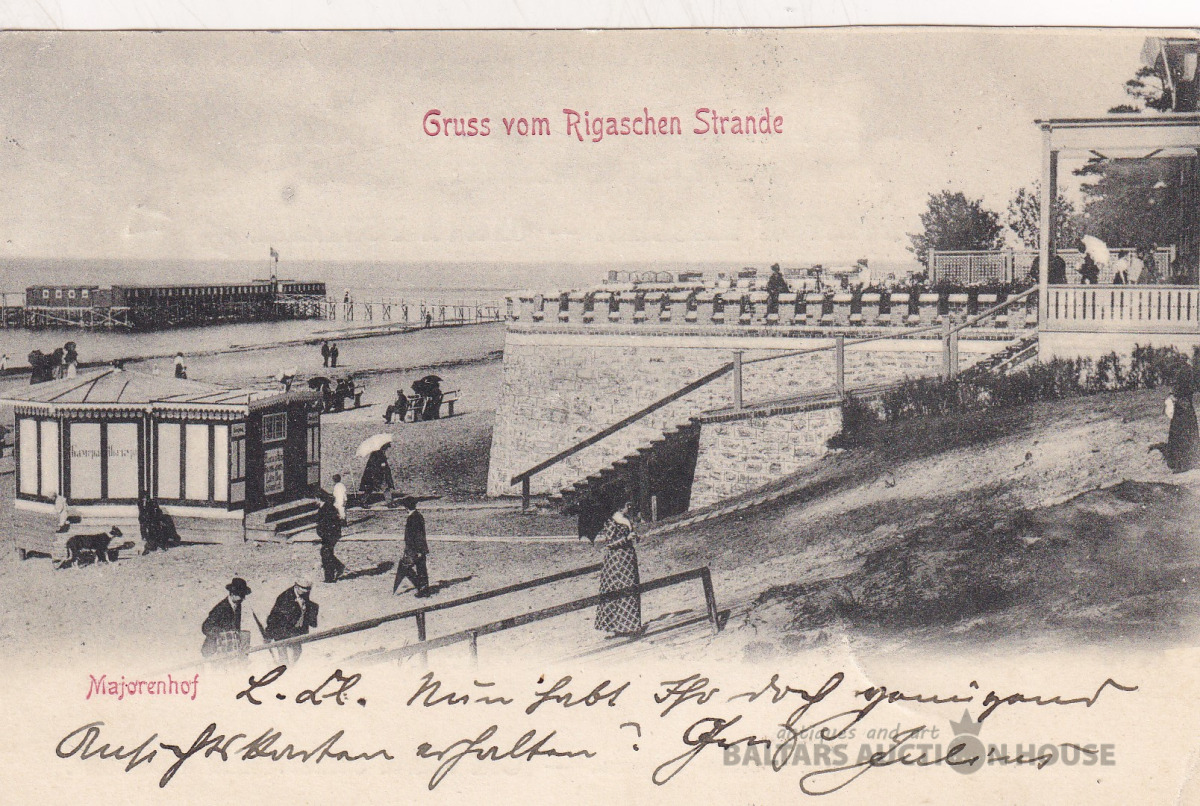 Gruss vom Rigaschen Strande
Majorenhof
L. Nun habt Ihr doch genügend
Ansichtskarten erhalten? Gruß Julius
antiques and art
BALTARS AUCTION HOUSE